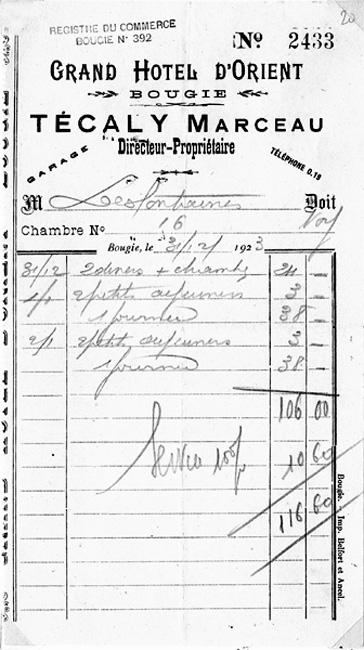 20
REGISTRE DU COMMERCE
BOUGIE N° 392
N° 2433
GRAND HOTEL D'ORIENT
BOUGIE
TÉCALY MARCEAU
GARAGE
Directeur-Propriétaire
TÉLÉPHONE 0.18
M Desfontaines Doit
Chambre N° 16
Bougie, le 31/12/ 1923
31/12 2 diners + chambre 24 —
1/1 2 petits dejeuners 3 —
1 journée 38 —
2/1 2 petits dejeuners 3 —
1 journée 38 —
106 00
Service 10% 10 60
116 60
Bougie. — Imp. Belfort et Ancel.